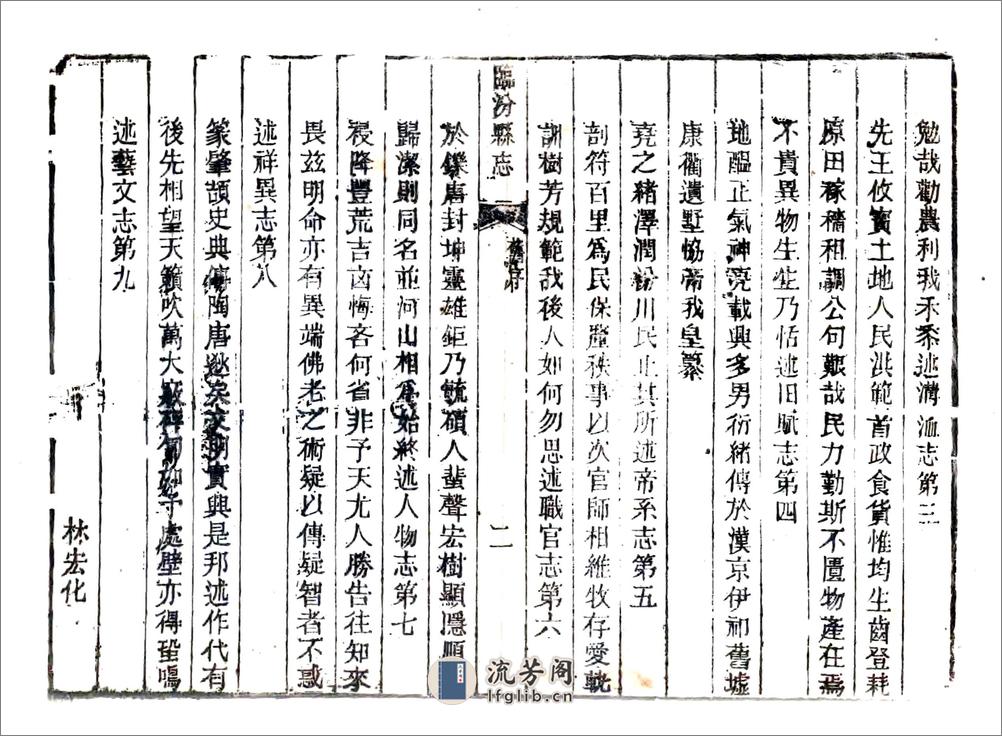 勉哉勸農利我禾黍述溝洫志第三
先王攸寶土地人民洪範首政食貨惟均生齒登耗
原田稼穡和調公旬艱哉民力勤斯不匱物產在焉
不貴異物生生乃恬述田賦志第四
地醞正氣神堯載興多男衍緒傳於漢京伊祁舊墟
康衢遺墅恊帝我皇纂
堯之緒澤潤汾川民止其所述帝系志第五
剖符百里為民保釐秩事以次官師相維牧存愛
訓樹芳規範我後人如何勿思述職官志第六
臨汾縣志
舊序
二
於鑠唐封坤靈雄鉅乃毓碩人蜚聲宏樹顯隱順
歸潔則同名並河山相為始終述人物志第七
祲降豐荒吉凶悔吝何省非予天尤人勝告往知來
畏兹明命亦有異端佛老之術疑以傳疑智者不惑
述祥異志第八
篆肇頡史典傳陶唐逖矣文明實興是邦述作代有
後先相望天籟吹萬大處壁亦得聖鳴
述藝文志第九
林宏化
流芳阁
lfglib.cn